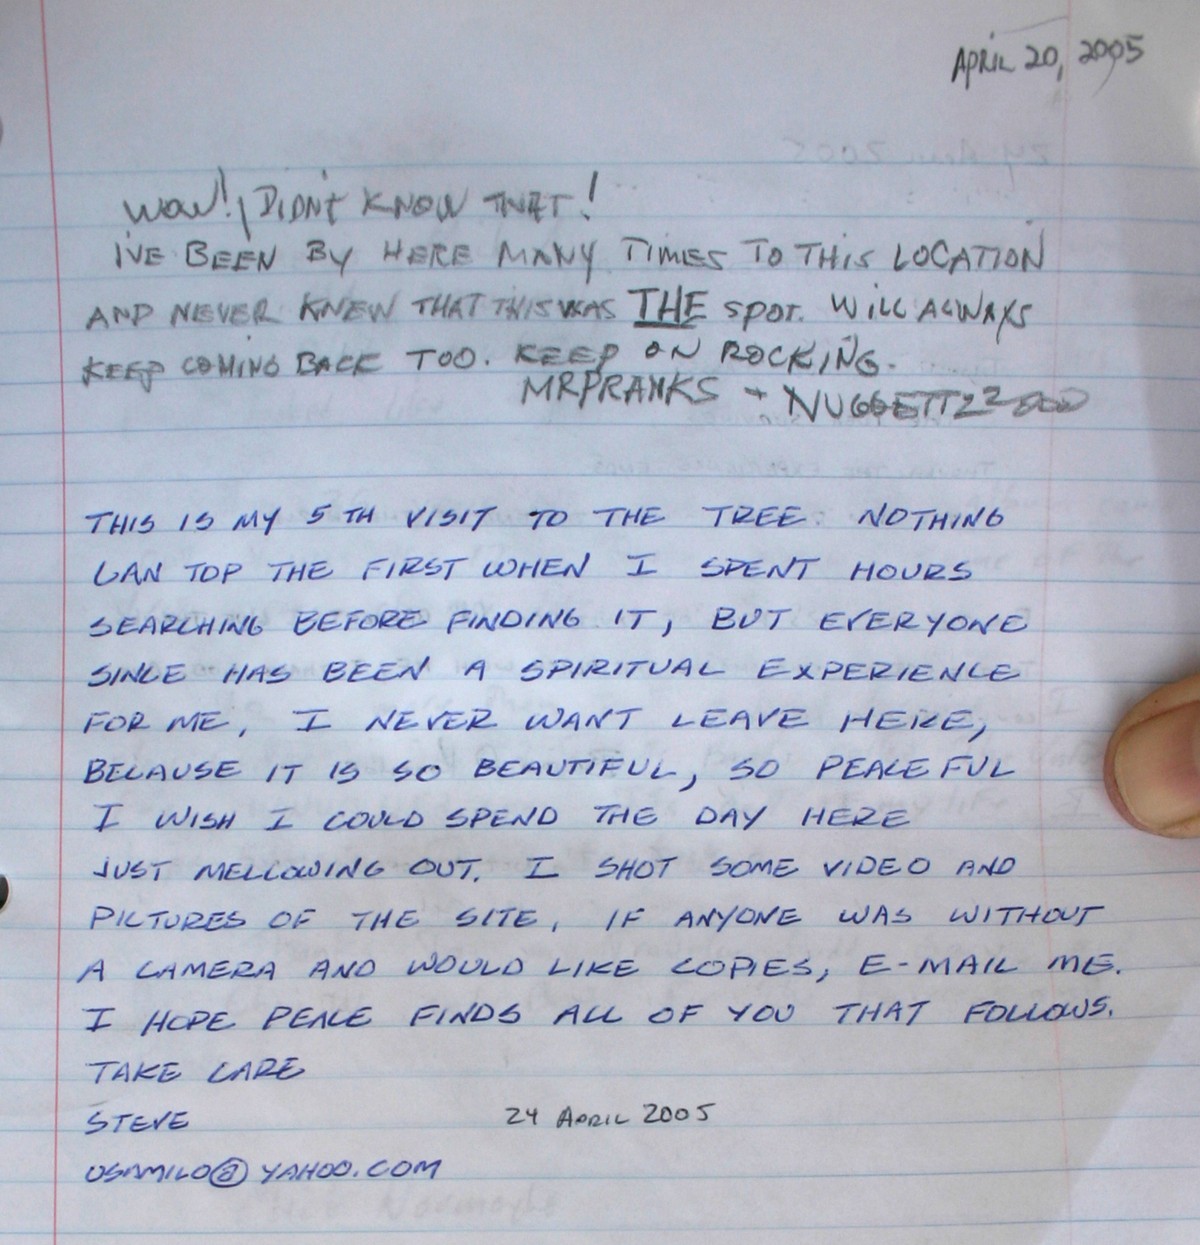 APRIL 20, 2005
WOW! DIDN'T KNOW THAT!
I'VE BEEN BY HERE MANY TIMES TO THIS LOCATION
AND NEVER KNEW THAT THIS WAS THE SPOT. WILL ALWAYS
KEEP COMING BACK TOO. KEEP ON ROCKING.
MRPRANKS + NUGGETTZ2
THIS IS MY 5TH VISIT TO THE TREE. NOTHING
CAN TOP THE FIRST WHEN I SPENT HOURS
SEARCHING BEFORE FINDING IT, BUT EVERYONE
SINCE HAS BEEN A SPIRITUAL EXPERIENCE
FOR ME, I NEVER WANT LEAVE HERE,
BECAUSE IT IS SO BEAUTIFUL, SO PEACEFUL
I WISH I COULD SPEND THE DAY HERE
JUST MELLOWING OUT. I SHOT SOME VIDEO AND
PICTURES OF THE SITE, IF ANYONE WAS WITHOUT
A CAMERA AND WOULD LIKE COPIES, E-MAIL ME.
I HOPE PEACE FINDS ALL OF YOU THAT FOLLOWS.
TAKE CARE
STEVE 24 APRIL 2005
USAMILO@YAHOO.COM